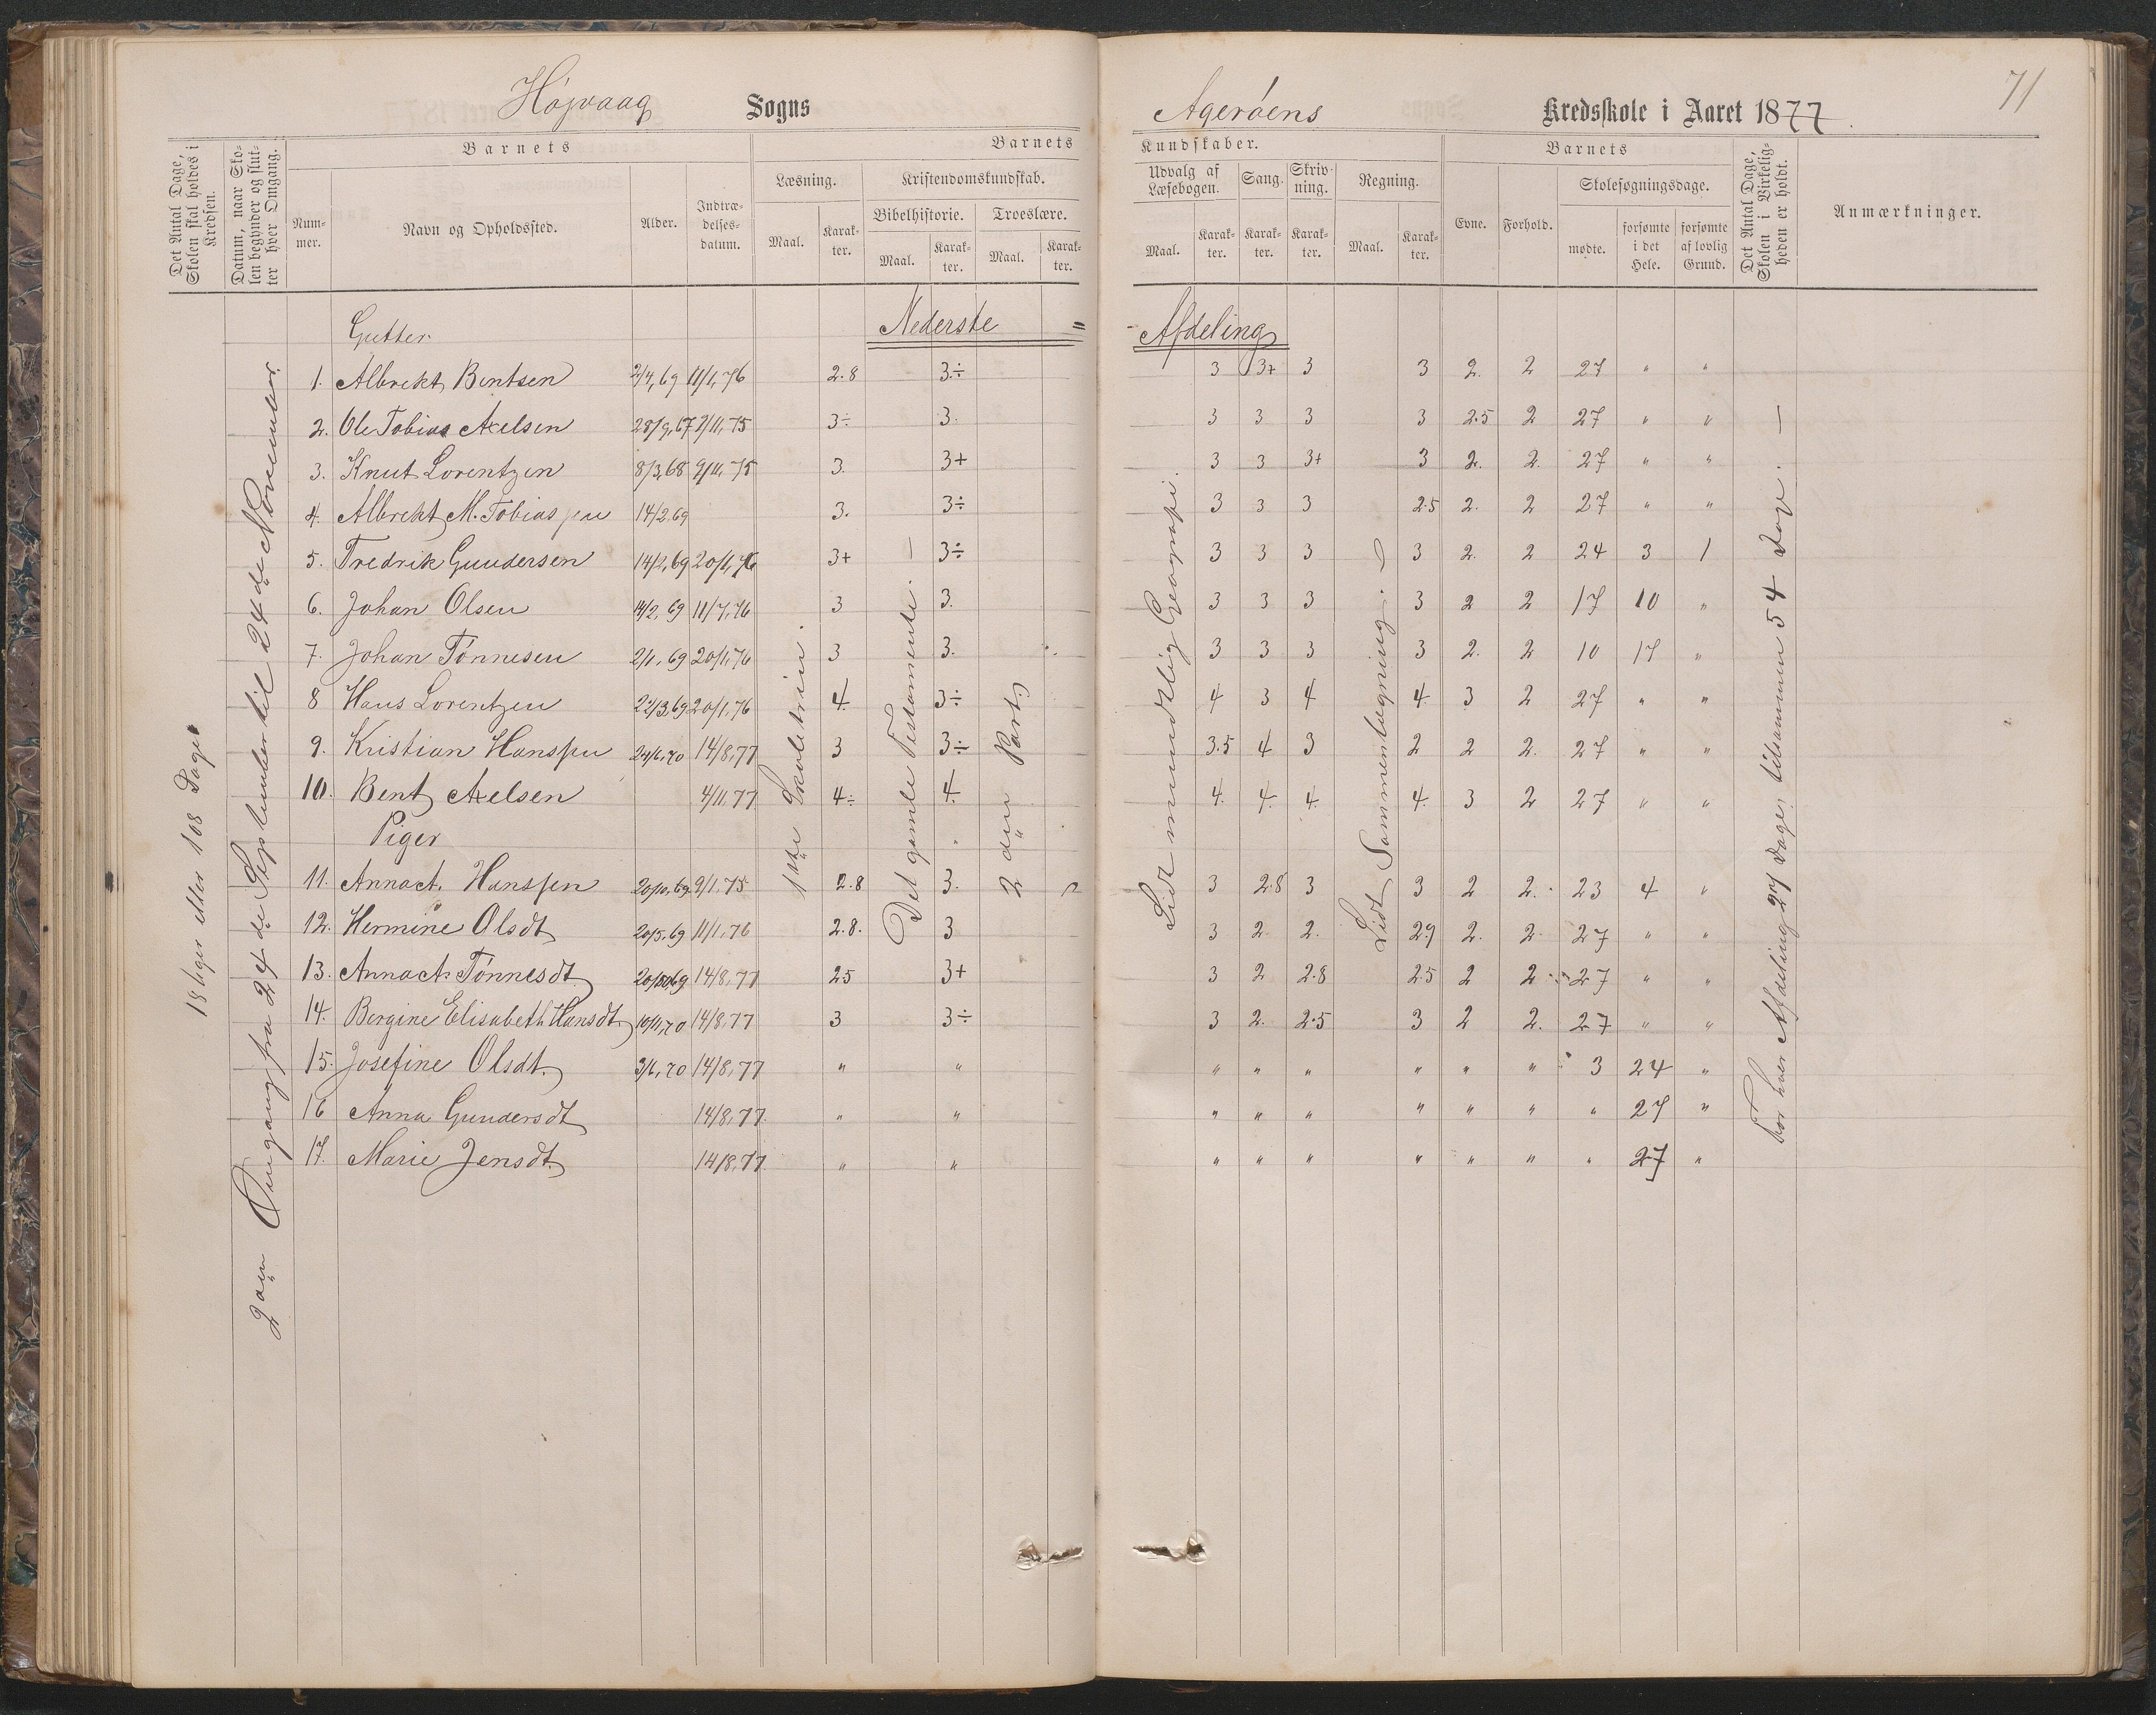 Højvaag Sogns
Agerøens Kredsskole i Aaret 1877.
71
Det Antal Dage, Skolen skal holdes i Kredsen.
Datum, naar Skolen begynder og slutter hver Omgang.
Barnets
Nummer.
Navn og Opholdssted.
Alder.
Indtrædelsesdatum.
Barnets
Læsning.
Maal.
Karakter.
Kristendomskundskab.
Bibelhistorie.
Maal.
Karakter.
Troeslære.
Maal.
Karakter.
Kundskaber.
Udvalg af Læsebogen.
Maal.
Karakter.
Sang.
Karakter.
Skrivning.
Karakter.
Regning.
Maal.
Karakter.
Barnets
Evne.
Forhold.
Skolesøgningsdage.
mødte.
forsømte i det Hele.
forsømte af lovlig Grund.
Det Antal Dage, Skolen i Virkeligheden er holdt.
Anmærkninger.
18 Uger eller 108 Dage
2den Omgang fra 24de September til 24de November.
1ste Skoletrin.
Det gamle Testamente. —
2den Part
Lidt mundtlig Geografi.
Lidt Sammenlægning.
For hver Afdeling 27 Dage, tilsammen 54 Dage. —
Gutter. Nederste = - Afdeling
1. Albrekt Bentsen 2/4,69 11/1,76 2.8 3÷ 3 3+ 3 3 2. 2 27 " "
2. Ole Tobias Axelsen 28/9,67 9/11,75 3÷ 3. 3 3 3 3 2.5 2 27 " "
3. Knut Lorentzen 8/3,68 9/11,75 3. 3+ 3 3 3+ 3 2. 2. 27 " "
4. Albrekt M. Tobiassen 14/2,69 3. 3÷ 3 3 3 2.5 2. 2 27 " "
5. Fredrik Gundersen 14/2,69 20/1,76 3+ 3÷ 3 3 3 3 2. 2 24 3 1
6. Johan Olsen 14/2,69 11/7,76 3 3. 3 3 3 3 2 2 17 10 "
7. Johan Tønnesen 2/1,69 20/1,76 3 3. 3 3 3 3 2. 2 10 17 "
8 Hans Lorentzen 22/3,69 20/1,76 4. 3÷ 4 3 4 4. 3 2 27 " "
9. Kristian Hanssen 24/6,70 14/8,77 3 3÷ 3.5 4 3 2 2 2. 27 " "
10. Bent Axelsen 4/11,77 4÷ 4. 4. 4. 4. 4. 3 2 27 " "
Piger
11. Anna A. Hanssen 20/10,69 9/1,75 2.8 3. 3 2.8 3 3 2 2. 23 4 "
12. Hermine Olsdt 20/5,69 11/1,76 2.8. 3 3 2. 2. 2.9 2. 2. 27 " "
13. Anna A. Tønnesdt. 14/8,77 2.5 3+ 3 2 2.8 2.5 2 2 27 " "
14. Bergine Elisabeth Hansdt. 10/11,70 14/8,77 3 3÷ 3 2. 2.5 3 2 2. 27 " "
15. Josefine Olsdt. 3/6,70 14/8,77 " " " " " " " " 3 24 "
16 Anna Gundersdt 14/8,77. " " " " " " " " " 27 "
17. Marie Jensdt. 14/8,77 " " " " " " " " " 27 "